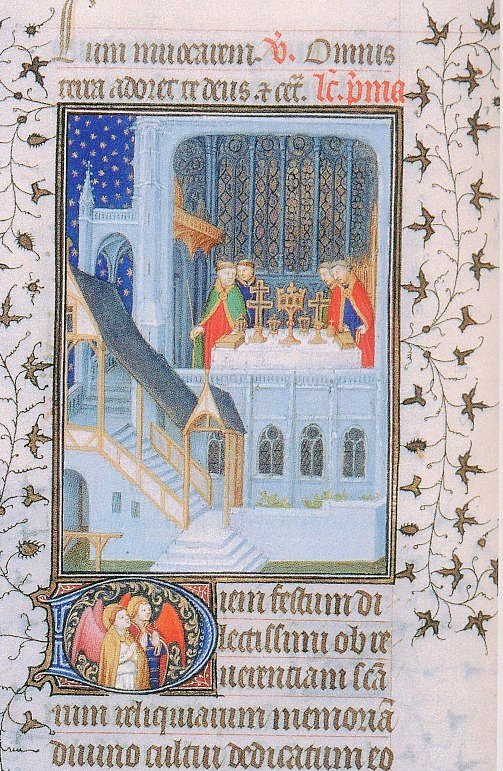 lum invocarem. V. Omnis
terra adoret te deus. & cet. lc. pma
Diem festum di
lectissimi ob re
uerentiam scā
rum reliquiarum memoriā
diuino cultui dedicatum eo